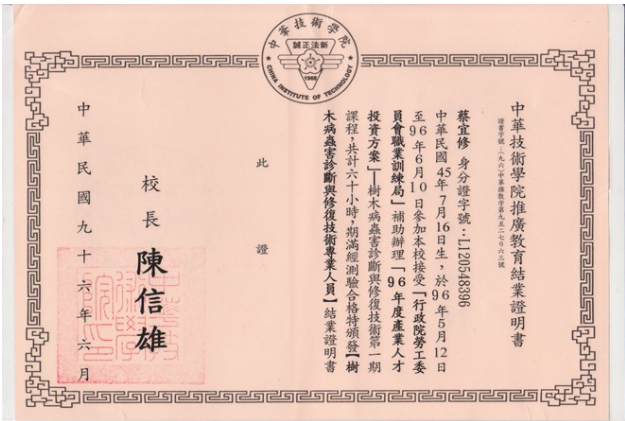 中華技術學院
新法正誠
1968
CHINA INSTITUTE OF TECHNOLOGY
中華技術學院推廣教育結業證明書
蔡宜修 身分證字號：L120548396
中華民國45年7月16日生，於96年5月12日
至96年6月10日參加本校接受「行政院勞工委
員會職業訓練局」補助辦理「96年度產業人才
投資方案」—樹木病蟲害診斷與修復技術第一期
課程，共計六十小時，期滿經測驗合格特頒發【樹
木病蟲害診斷與修復技術專業人員】結業證明書
此證
校長 陳信雄
中華民國九十六年六月